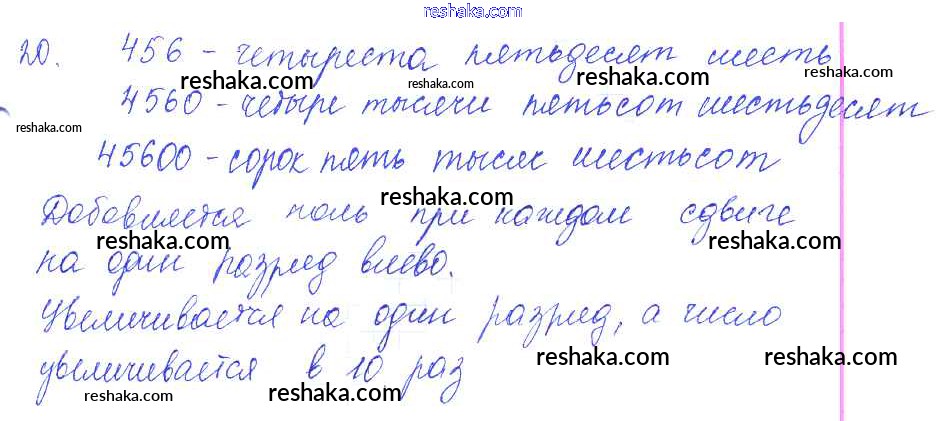 reshaka.com
20. 456 - четыреста пятьдесят шесть
reshaka.com reshaka.com reshaka.com
4560 - четыре тысячи пятьсот шестьдесят
reshaka.com
45600 - сорок пять тысяч шестьсот
reshaka.com
Добавляется ноль при каждом сдвиге
reshaka.com reshaka.com
на один разряд влево.
Увеличивается на один разряд, а число
reshaka.com reshaka.com
увеличивается в 10 раз
reshaka.com reshaka.com